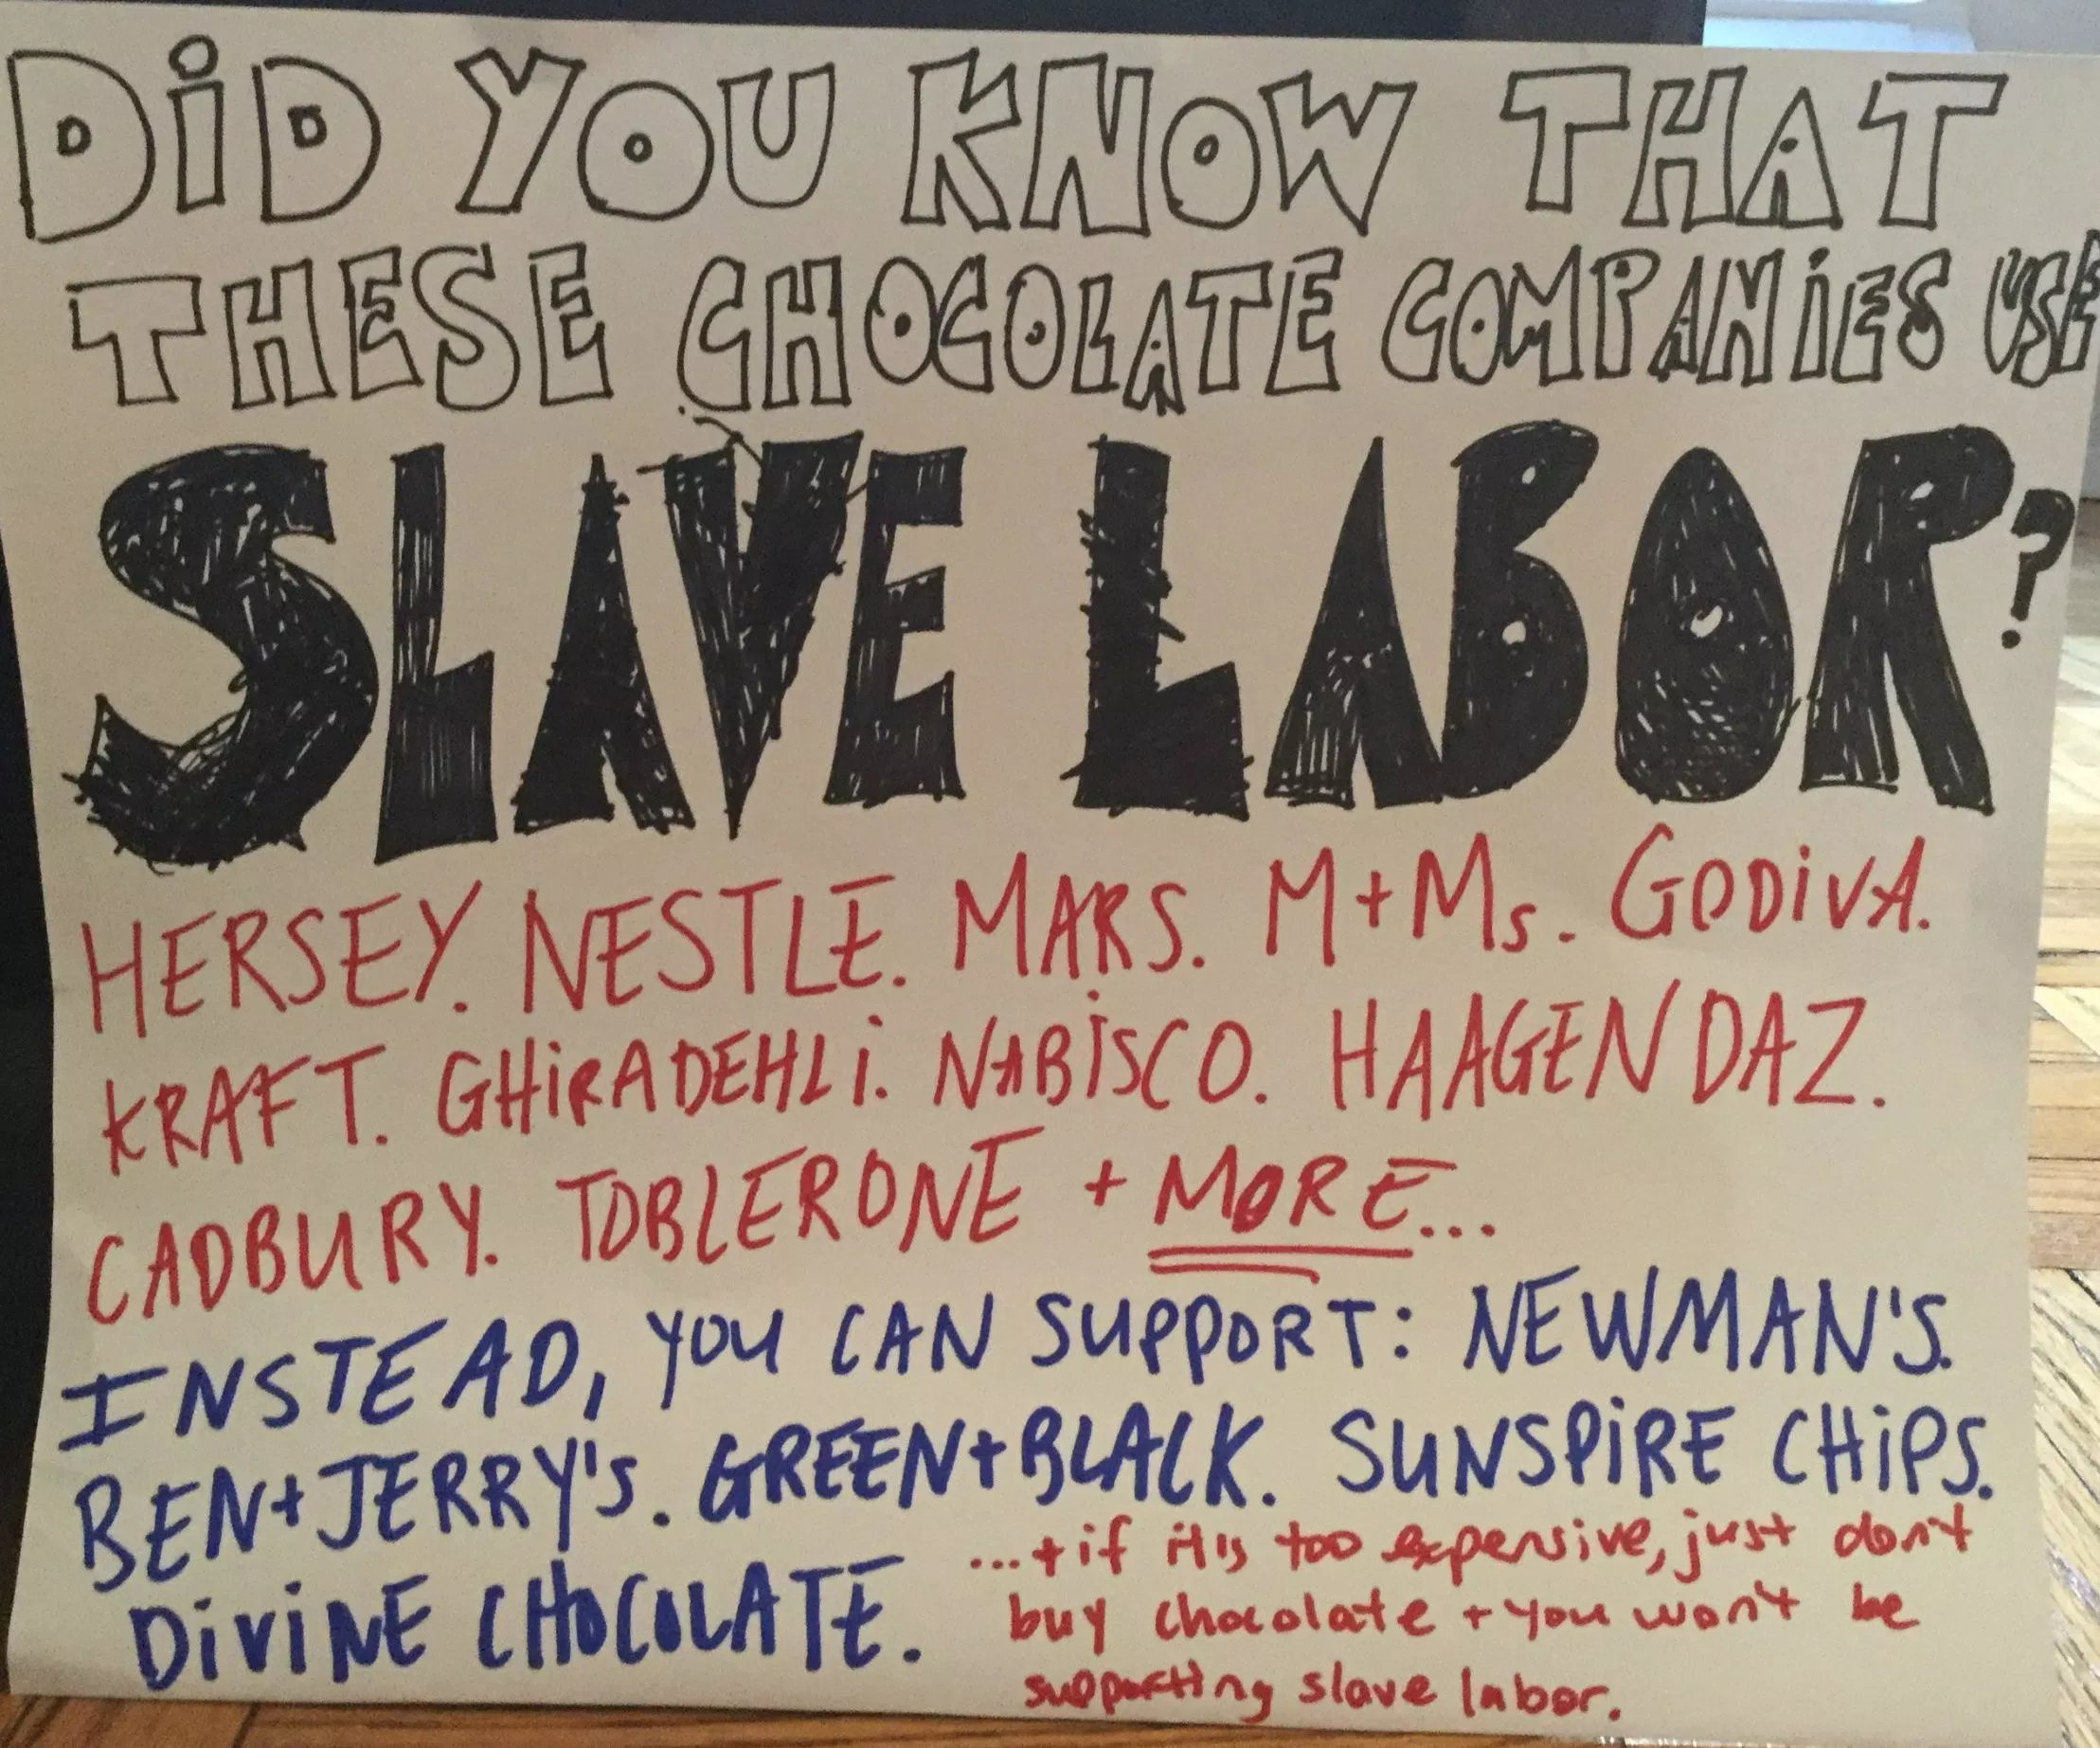 DiD YOU KNOW THAT
THESE CHOCOLATE COMPANiES USE
SLAVE LABOR?
HERSEY. NESTLE. MARS. M+Ms. GODiVA.
KRAFT. GHiRADEHLi. NABISCO. HAAGENDAZ.
CADBURY. TOBLERONE + MORE...
INSTEAD, YOU CAN SUPPORT: NEWMAN'S.
BEN+JERRY'S. GREEN+BLACK. SUNSPiRE CHiPS.
DiViNE CHOCOLATE.
...+ if it's too expensive, just don't
buy chocolate + you won't be
supporting slave labor.